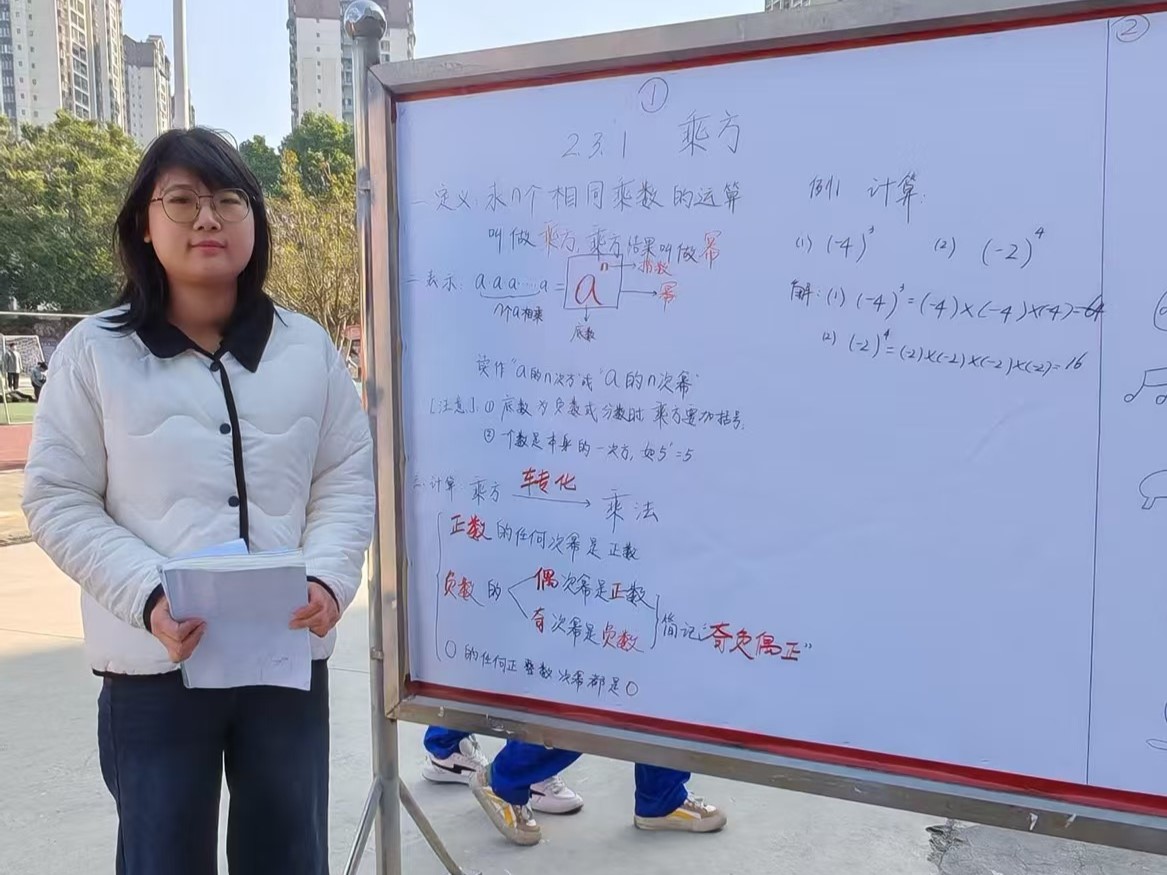 ①
2.3.1 乘方
一 定义: 求n个相同乘数的运算
叫做乘方, 乘方结果叫做幂
二 表示: a a a……a = aⁿ
指数
幂
n个a相乘
底数
读作“a的n次方”或“a的n次幂”
[注意]: ① 底数为负数或分数时 乘方要加括号;
② 个数是本身的一次方, 如5¹=5
三、计算: 乘方 转化 乘法
正数的任何次幂是正数
负数的
偶次幂是正数
奇次幂是负数
简记:“奇负偶正”
0的任何正整数次幂都是0
例1 计算:
(1) (-4)³ (2) (-2)⁴
解: (1) (-4)³=(-4)×(-4)×(-4)=-64
(2) (-2)⁴=(-2)×(-2)×(-2)×(-2)=16
②